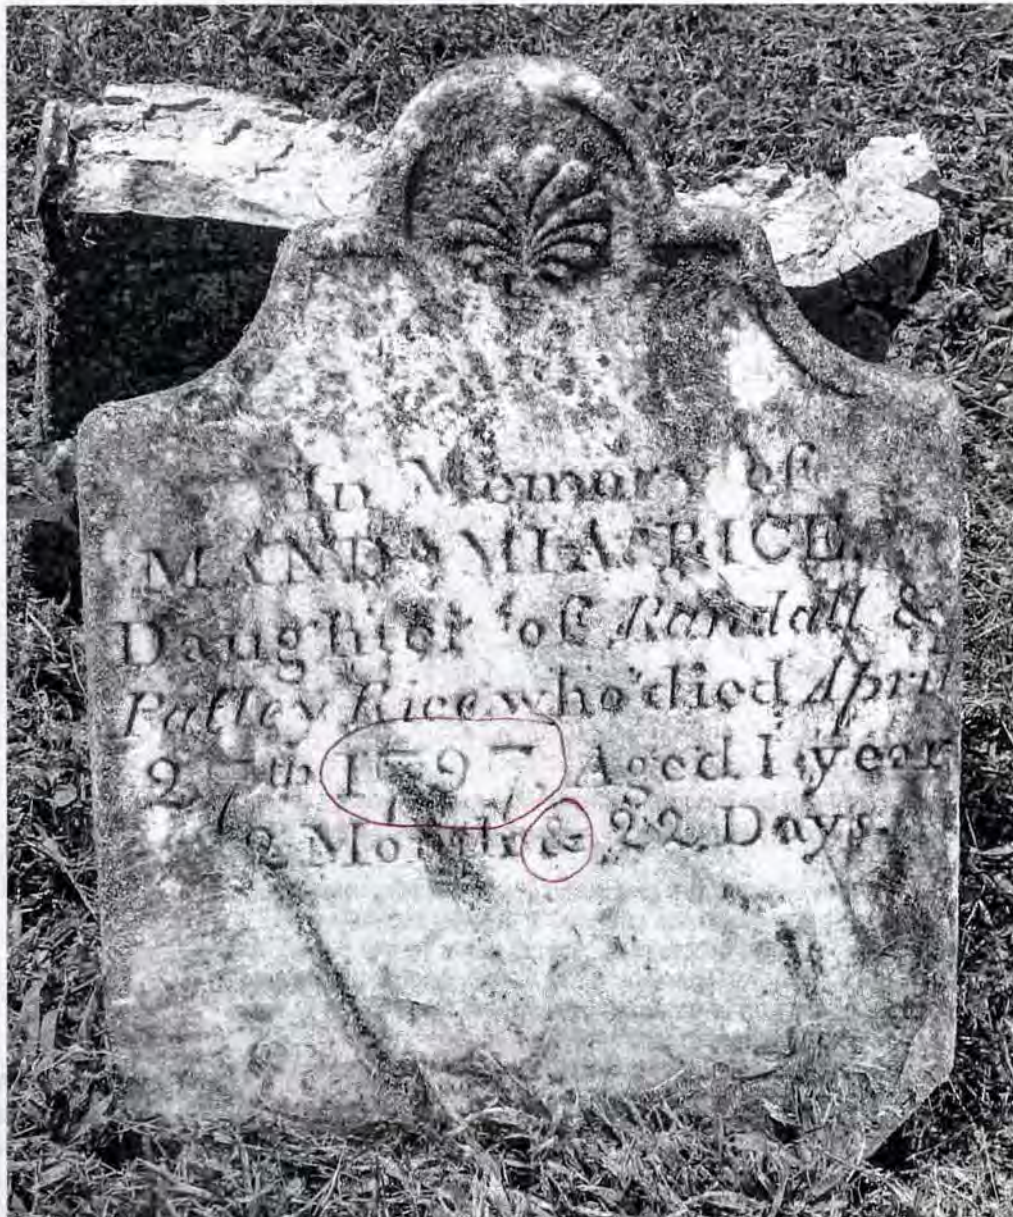 In Memory of
RICE
Daughter of Randall &
Patley Rice who died April
th 1797, Aged 1 year
2 Months & 22 Days